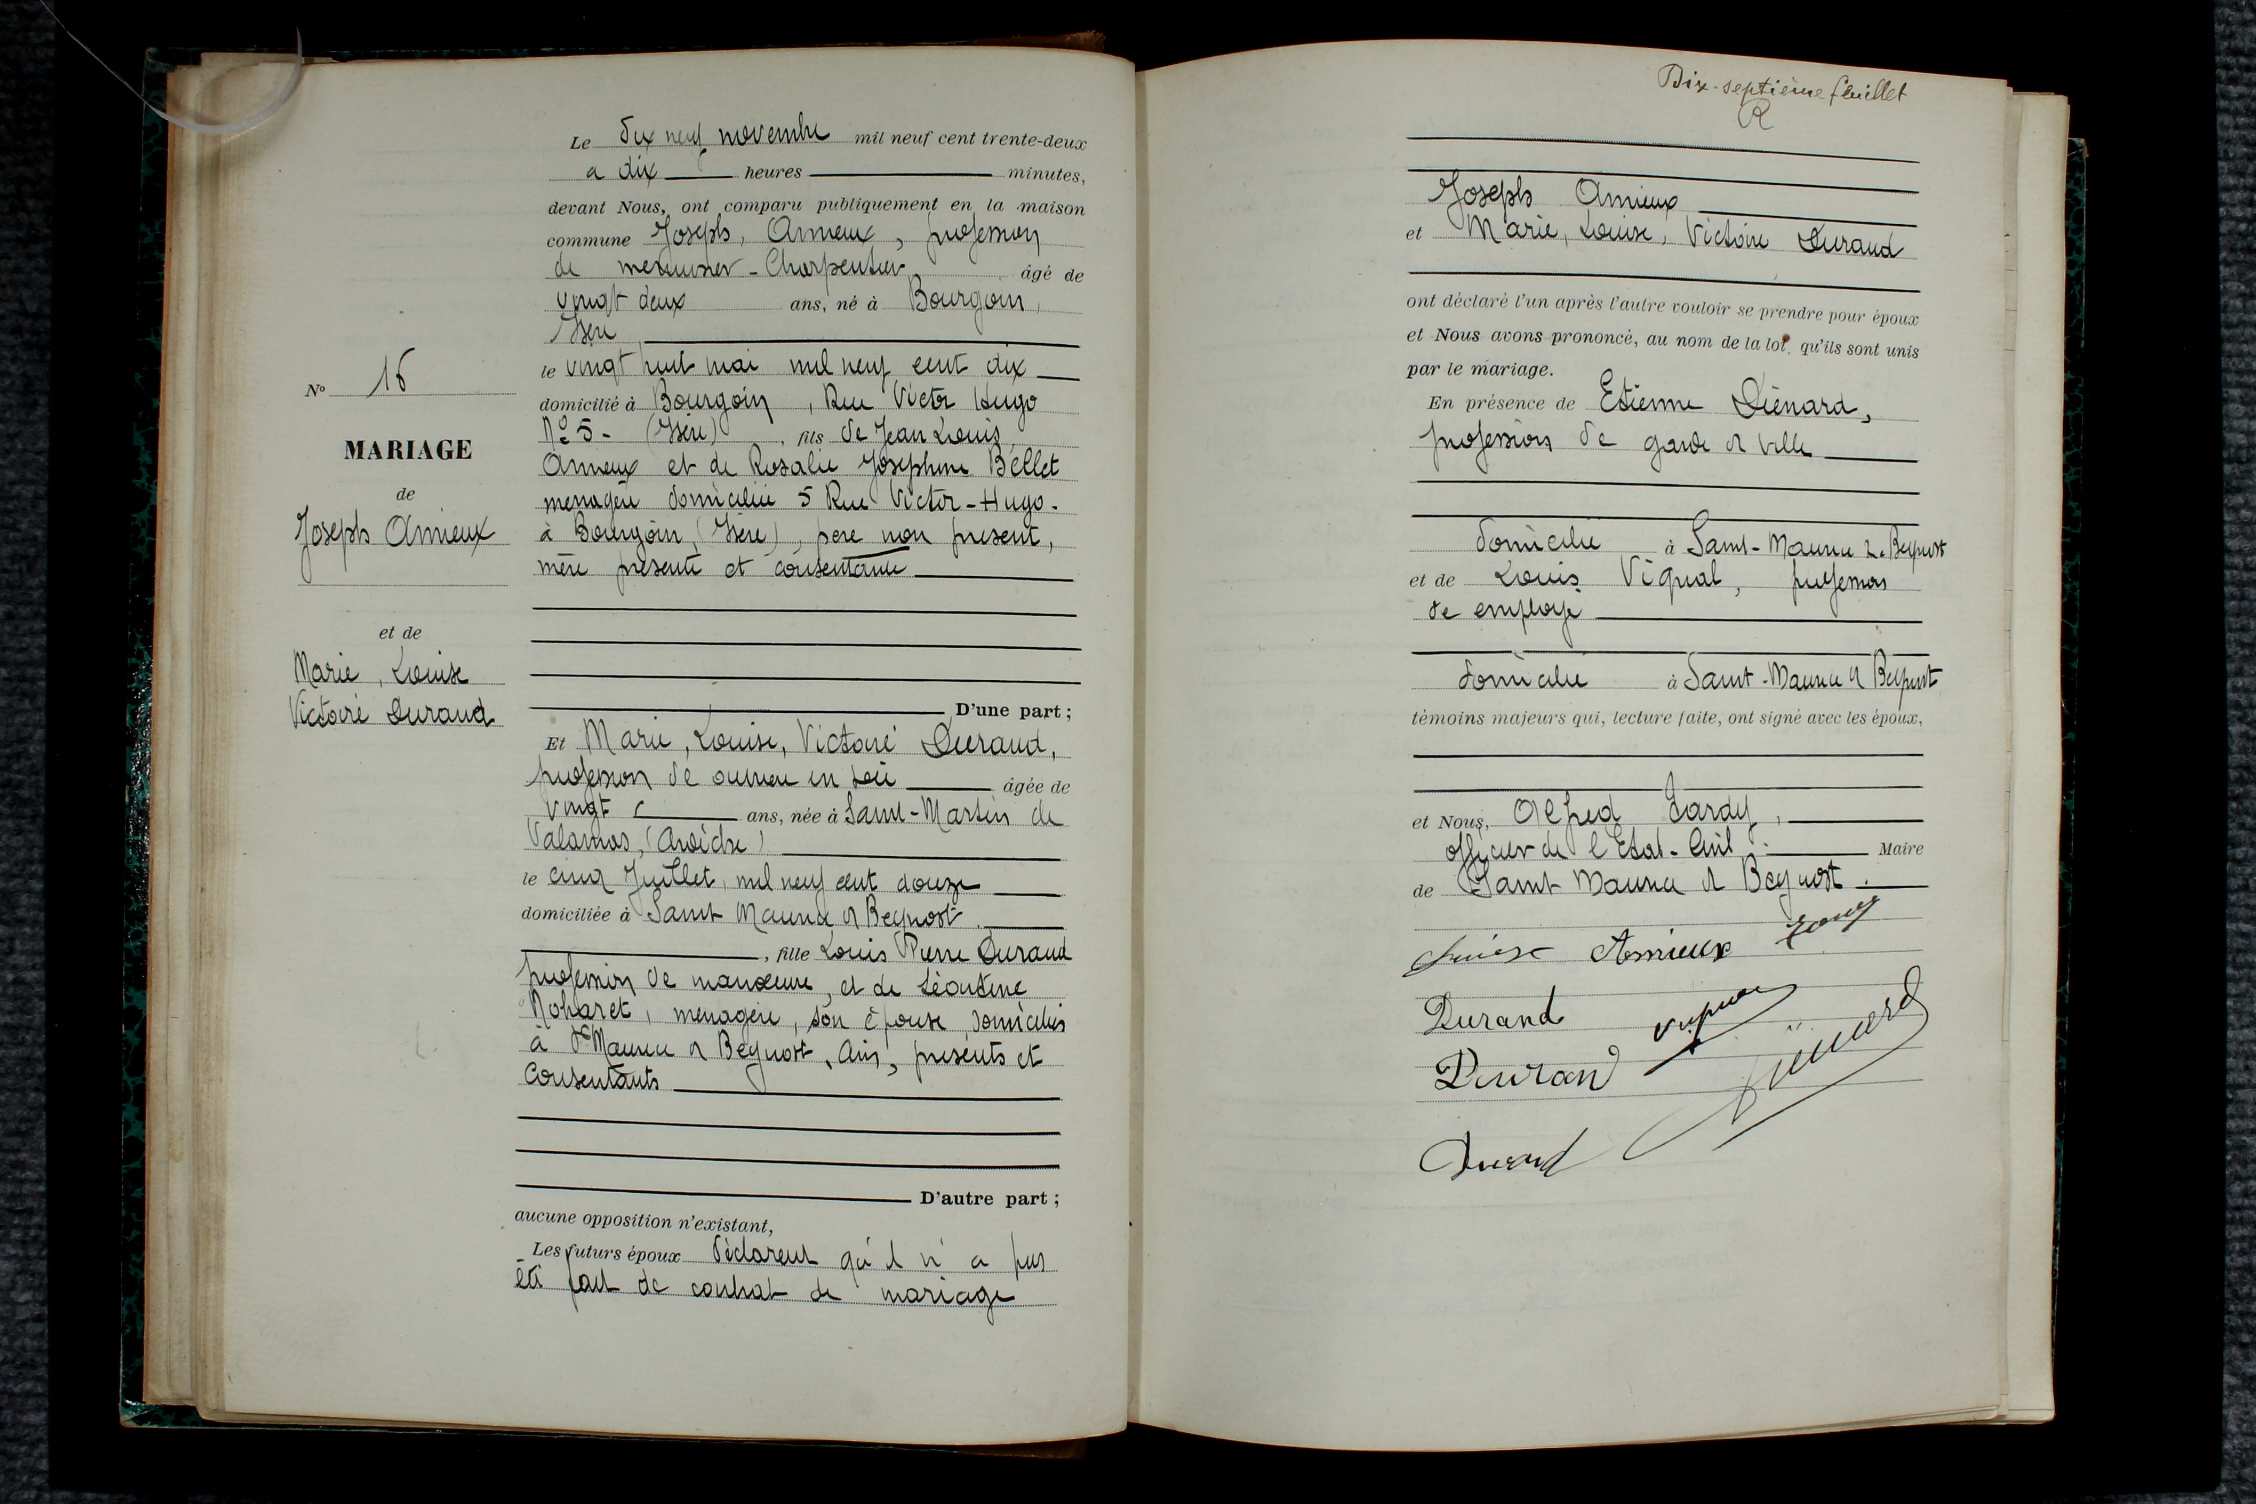 Le dix neuf novembre mil neuf cent trente-deux
a dix heures minutes,
devant Nous, ont comparu publiquement en la maison
commune Joseph, Amieux, profession
de menuisier-Charpentier âgé de
vingt deux ans, né à Bourgoin,
Isère
le vingt huit mai mil neuf cent dix
domicilié à Bourgoin, Rue Victor Hugo
No 5- (Isère), fils de Jean Louis
Amieux et de Rosalie Josephine Bellet
menagère domiciliée 5 Rue Victor-Hugo-
à Bourgoin, (Isère), père non présent,
mère présente et consentante
D'une part;
No 16
MARIAGE
de
Joseph Amieux
et de
Marie, Louise
Victoire Durand
Et Marie, Louise, Victoire Durand,
profession de ouvrière en soie âgée de
vingt ans, née à Saint-Martin de
Valamas, (Ardèche)
le cinq Juillet, mil neuf cent douze
domiciliée à Saint Maurice de Beynost.
, fille Louis Pierre Durand
profession de manœuvre, et de Léontine
Noharet, menagère, son épouse domiciliés
à St Maurice de Beynost, Ain, présents et
consentants
D'autre part;
aucune opposition n'existant,
Les futurs époux déclarent qu'il n'a pas
été fait de contrat de mariage
Dix-septième feuillet
R
Joseph Amieux
et Marie, Louise, Victoire Durand
ont déclaré l'un après l'autre vouloir se prendre pour époux
et Nous avons prononcé, au nom de la loi, qu'ils sont unis
par le mariage.
En présence de Etienne Diénard,
profession de garde de ville
domicilié à Saint-Maurice de Beynost
et de Louis Vignal, profession
de employé
domicilié à Saint-Maurice de Beynost
témoins majeurs qui, lecture faite, ont signé avec les époux,
et Nous, Alfred Tardy,
officier de l'Etat-Civil. Maire
de Saint Maurice de Beynost.
Amieux
Durand
Durand
Durand